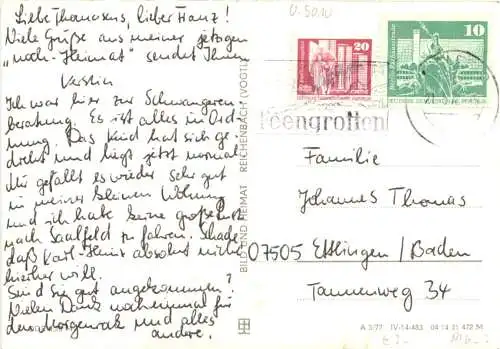 Liebe Thomasens, lieber Franz!
Viele Grüße aus meiner jetzigen
"noch-Heimat" sendet Ihnen
Kerstin
Ich war hier zur Schwangeren-
beratung. Es ist alles in Ord-
nung. Das Kind hat sich ge-
dreht und liegt jetzt normal.
Mir gefällt es wieder sehr gut
in meiner kleinen Wohnung
und ich habe keine große Lust
nach Saalfeld zu fahren. Schade
daß Karl-Heinz absolut nicht
hierher will.
Sind Sie gut angekommen?
Vielen Dank nocheinmal für
den Morgenrock und alles
andere.
BILD UND HEIMAT REICHENBACH (VOGTL)
20
10
Feengrotten
Familie
Johannes Thomas
07505 Ettlingen/Baden
Tannenweg 34
A 3/77 IV-14-483 04 14 21 472 M